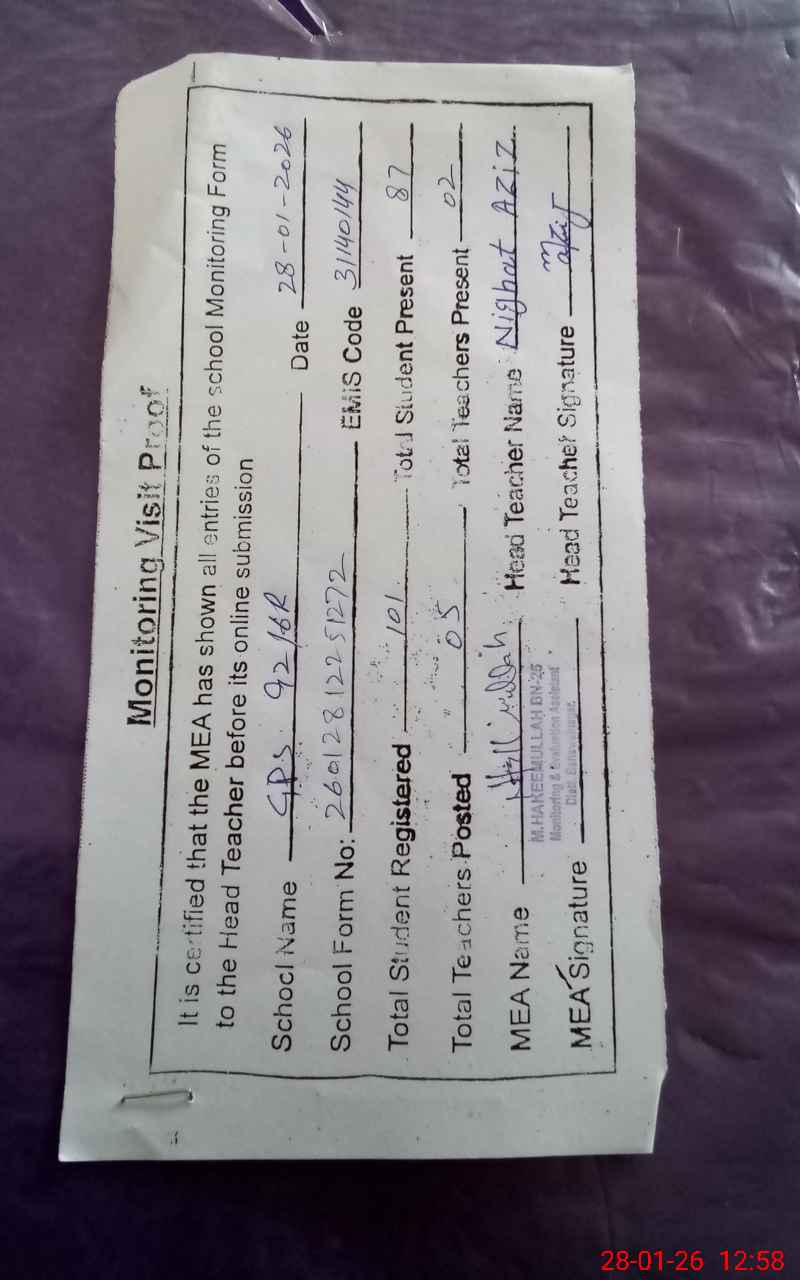 Monitoring Visit Proof
It is certified that the MEA has shown all entries of the school Monitoring Form
to the Head Teacher before its online submission
School Name GPS 92/6R Date 28-01-2026
School Form No: 26012812251272 EMIS Code 31140144
Total Student Registered 101 Total Student Present 87
Total Teachers Posted 05 Total Teachers Present 02
MEA Name Head Teacher Name Nighat Aziz
M.HAKEEMULLAH BN-25
Monitoring & Evaluation Assistant
Distt. Bahawalnagar.
MEA Signature Head Teacher Signature
28-01-26 12:58